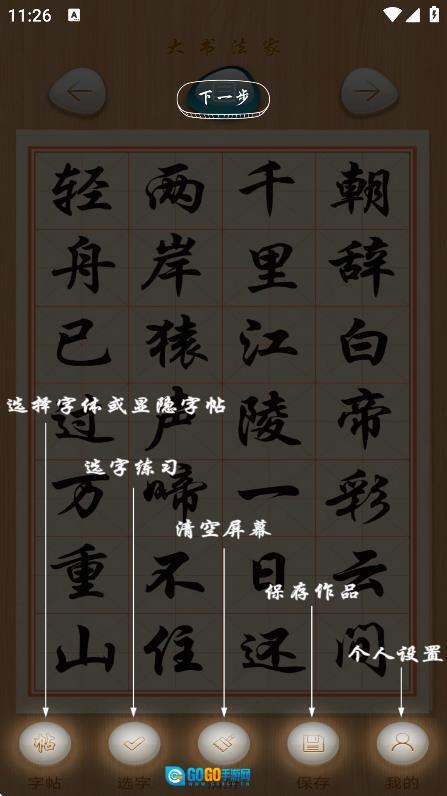 11:26
A
大书法家
下一步
朝辞白帝彩云间
千里江陵一日还
两岸猿声啼不住
轻舟已过万重山
选择字体或显隐字帖
选字练习
清空屏幕
保存作品
个人设置
帖
字帖
选字
保存
我的
GOGO手游网